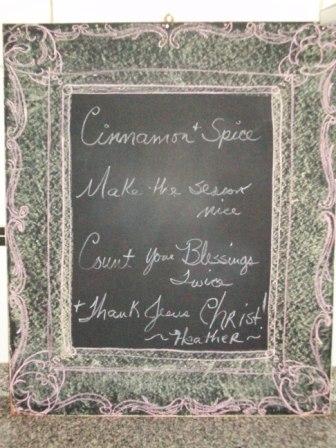 Cinnamon + Spice
Make the season
nice
Count your Blessings
Twice
+ Thank Jesus Christ!
~ Heather ~